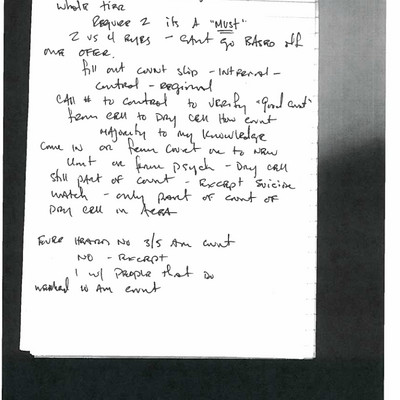 whole tier
Require 2 its A "MUST"
2 vs 4 eyes - can't go BASED off
one offer.
fill out count slip - internal -
control - regional
CAll # to control to verify "good count"
from cell to Dry cell How count
majority to my knowledge
come in or from court or to new
unit or from psych - Dry cell
still part of count - Except Suicide
watch - only part of count of
Dry cell in Area
Ever Heard No 3/5 Am count
NO - Except
1 w/ People that do
worked 10 Am count